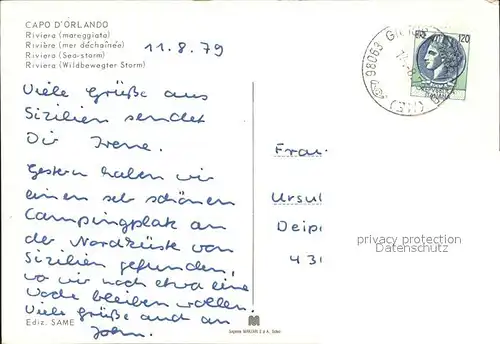 CAPO D'ORLANDO
Riviera (mareggiata)
Rivière (mer déchaînée)
Riviera (Sea-storm)
Riviera (Wildbewegter Storm)
11.8.79
Viele Grüße aus
Sizilien sendet
Dir Irene.
Gestern haben wir
einen sehr schönen
Campingplatz an
der Nordküste von
Sizilien gefunden,
wo wir noch etwa eine
Woche bleiben wollen.
Viele Grüße auch an
John.
Ediz. SAME
120
98063
(ME)
Frau
Ursul
Deip
43
privacy protection
Datenschutz